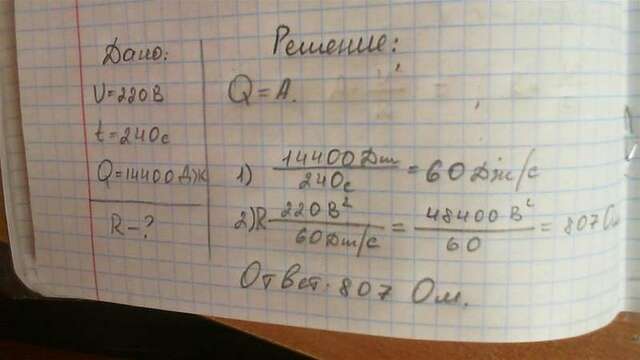 Дано:
U=220В
t=240с
Q=14400Дж
R-?
Решение:
Q=A.
1) 14400Дж/240с = 60Дж/с
2) R 220В²/60Дж/с = 48400В²/60 = 807 Ом
Ответ: 807 Ом.